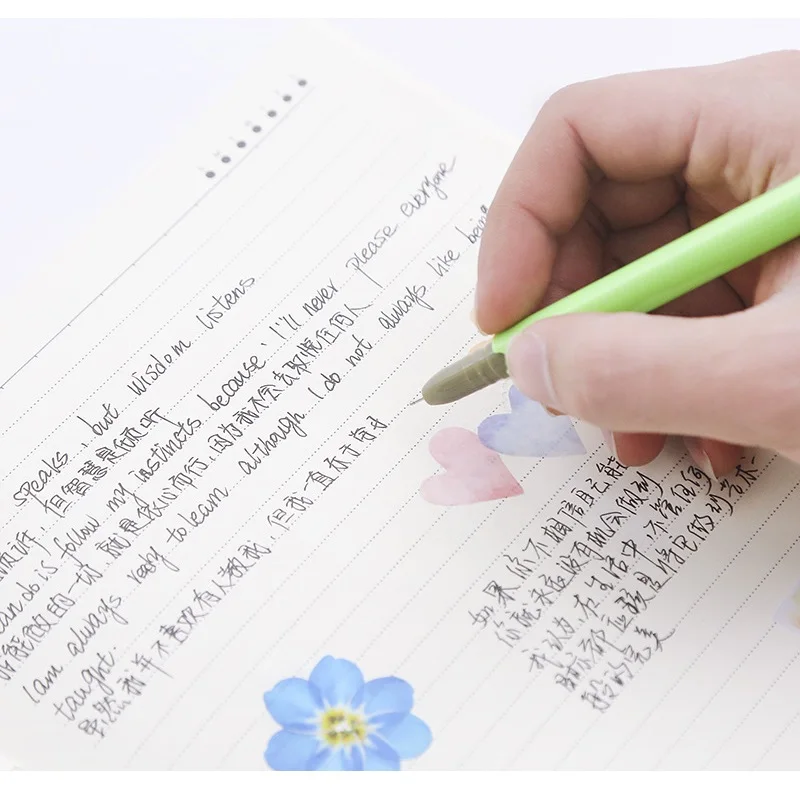 speaks, but wisdom listens
但智慧是倾听
can do is follow my instincts because, I'll never please everyone
所能做的一切,就是依心而行,因为我不会去取悦任何人
I am always ready to learn although I do not always like being
taught.
虽然我并不喜欢有人教我,但我一直乐于学习
如果你不相信自己能
你就永远没有机会做到
我认为,在生活中,不管任何
时候都应该是
般的完美